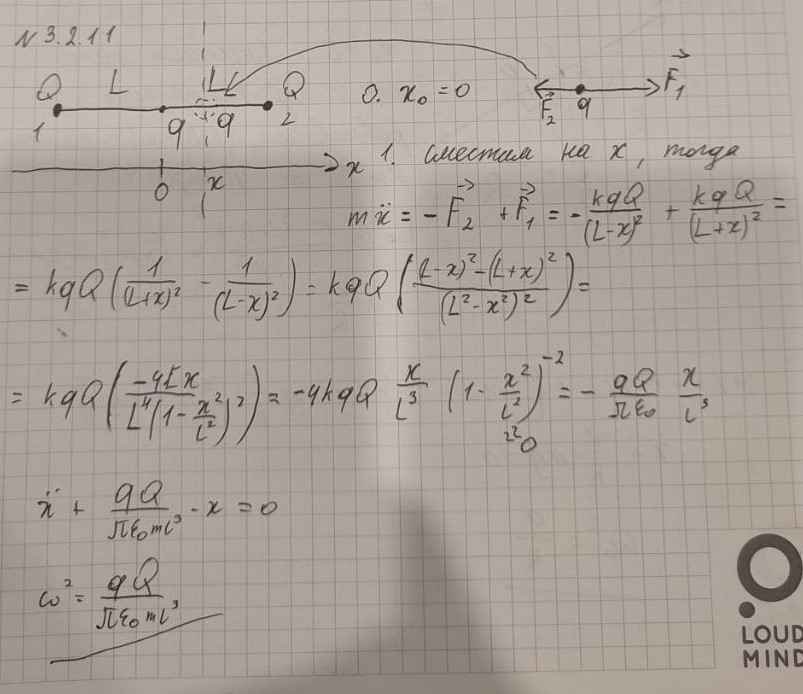 N 3.2.11
Q L L Q
1 q q 2
0 x x
0. x₀ = 0
F⃗₂ q F⃗₁
1. сместим на x, тогда
mẍ = -F⃗₂ + F⃗₁ = -kqQ/(L-x)² + kqQ/(L+x)² =
= kqQ(1/(L+x)² - 1/(L-x)²) = kqQ((L-x)²-(L+x)²/(L²-x²)²) =
= kqQ(-4Lx/L⁴(1-x²/L²)²) = -4kqQ x/L³ (1-x²/L²)⁻² = - qQ/πε₀ x/L³
≈0
ẍ + qQ/πε₀mL³ · x = 0
ω² = qQ/πε₀mL³
LOUD
MIND